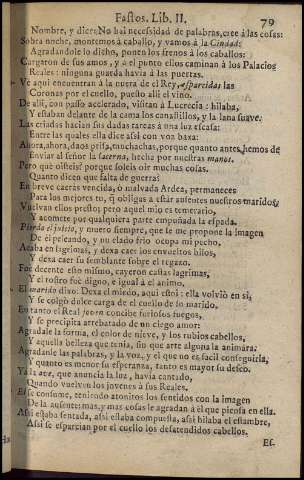 Fastos. Lib. II. 79
Nombre, y dice: No hai necesidad de palabras, cree à las cosas:
Sobra noche, montemos à caballo, y vamos à la Ciudad:
Agradandole lo dicho, ponen los frenos à los caballos:
Cargaron de sus amos, y à el punto ellos caminan à los Palacios
Reales: ninguna guarda havia à las puertas.
Ve aqui encuentran à la nuera de el Rey, esparcidas las
Coronas por el cuello, puesto allì el vino.
De allì, con passo acelerado, visitan à Lucrecia: hilaba,
Y estaban delante de la cama los canastillos, y la lana suave.
Las criadas hacian sus dadas tareas à una luz escasa:
Entre las quales ella dice assi con voz baxa:
Ahora, ahora, daos prisa, muchachas, porque quanto antes hemos de
Enviar al señor la lacerna, hecha por nuestras manos.
Pero què oìsteis? porque soleis oìr muchas cosas.
Quanto dicen que falta de guerra?
En breve caeràs vencida, ò malvada Ardea, permaneces
Para los mejores tu, q obligas à estàr ausentes nuestros maridos
Vuelvan ellos prestos, pero aquel mio es temerario,
Y acomete por qualquiera parte empuñada la espada.
Pierdo el juicio, y muero siempre, que se me propone la imagen
De èl peleando, y un elado frio ocupa mi pecho.
Acaba en lagrimas, y dexa caer los envueltos hilos,
Y dexa caer su semblante sobre el regazo.
Fue decente esto mismo, cayeron castas lagrimas,
Y el rostro fuè digno, è igual à el animo.
El marido dixo: Dexa el miedo, aqui estoi: ella volviò en sì,
Y se colgò dulce carga de el cuello de su marido.
En tanto el Real joven concibe furiosos fuegos,
Y se precipita arrebatado de un ciego amor:
Agradale la forma, el color de nieve, y los rubios cabellos,
Y aquella belleza que tenia, sin que arte alguna la animàra.
Agradanle las palabras, y la voz, y el que no es facil conseguirla,
Y quanto es menor su esperanza, tanto es mayor su deseo.
Yà la ave, que anuncia la luz, havia cantado,
Quando vuelven los jovenes à sus Reales.
El se consume, teniendo atonitos los sentidos con la imagen
De la ausente: mas, y mas cosas le agradan à èl que piensa en ella.
Assi estaba sentada, assi estaba compuesta, assi hilaba el estambre,
Assi se esparcian por el cuello los desatendidos cabellos.
Es-